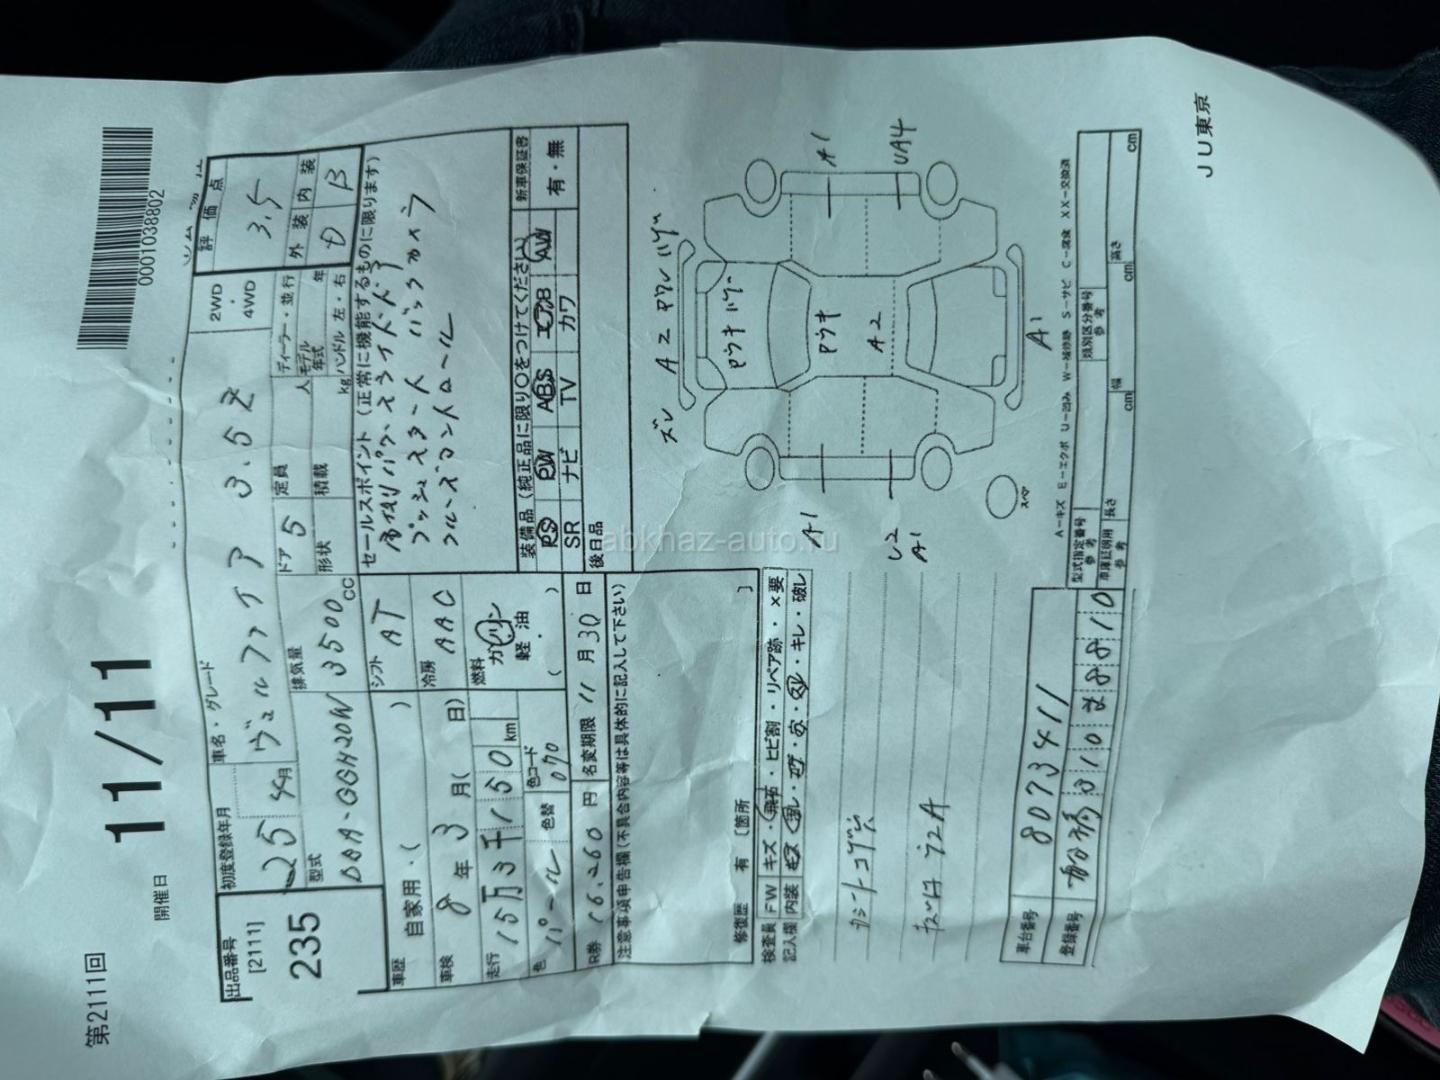 第2111回
開催日
11/11
0001038802
出品番号
[2111]
235
初度登録年月
25
4月
車名・グレード
ヴェルファイア 3.5Z
2WD
・
4WD
評価点
3.5
外装
内装
D
B
型式
DBA-GGH20W
排気量
3500
CC
ドア
5
形状
定員
人
積載
kg
ディーラー・並行
モデル
年式
年
ハンドル 左・右
車歴
自家用・(
)
シフト
AT
車検
8年3月(
日)
冷房
AAC
走行
15万3千150
km
燃料
ガソリン
軽・油
(
)
色
パール
色替
色コード
070
R券
16.260
円
名変期限
11月30日
セールスポイント (正常に機能するものに限ります)
両側パワースライドドア
プッシュスタート バックカメラ
クルーズコントロール
装備品 (純正品に限り○をつけてください)
PS
PW
ABS
AW
SR
ナビ
TV
カワ
新車保証書
有・無
後日品
注意事項申告欄 (不具合内容等は具体的に記入して下さい)
修復歴
有
[箇所
]
検査員
記入欄
FW
キズ・飛石・ヒビ割・リペア跡・×要
内装
・キレ・破レ
ズレ
A2
A1
UA4
A2
A1
U2
A1
A1
スペア
A―キズ E―エクボ U―凹み W―補修跡 S―サビ C―腐食 XX―交換済
車台番号
8073411
登録番号
型式指定番号
参考
類別区分番号
参考
車庫証明用
参考
長さ
cm
幅
cm
高さ
cm
JU東京
abkhaz-auto.ru